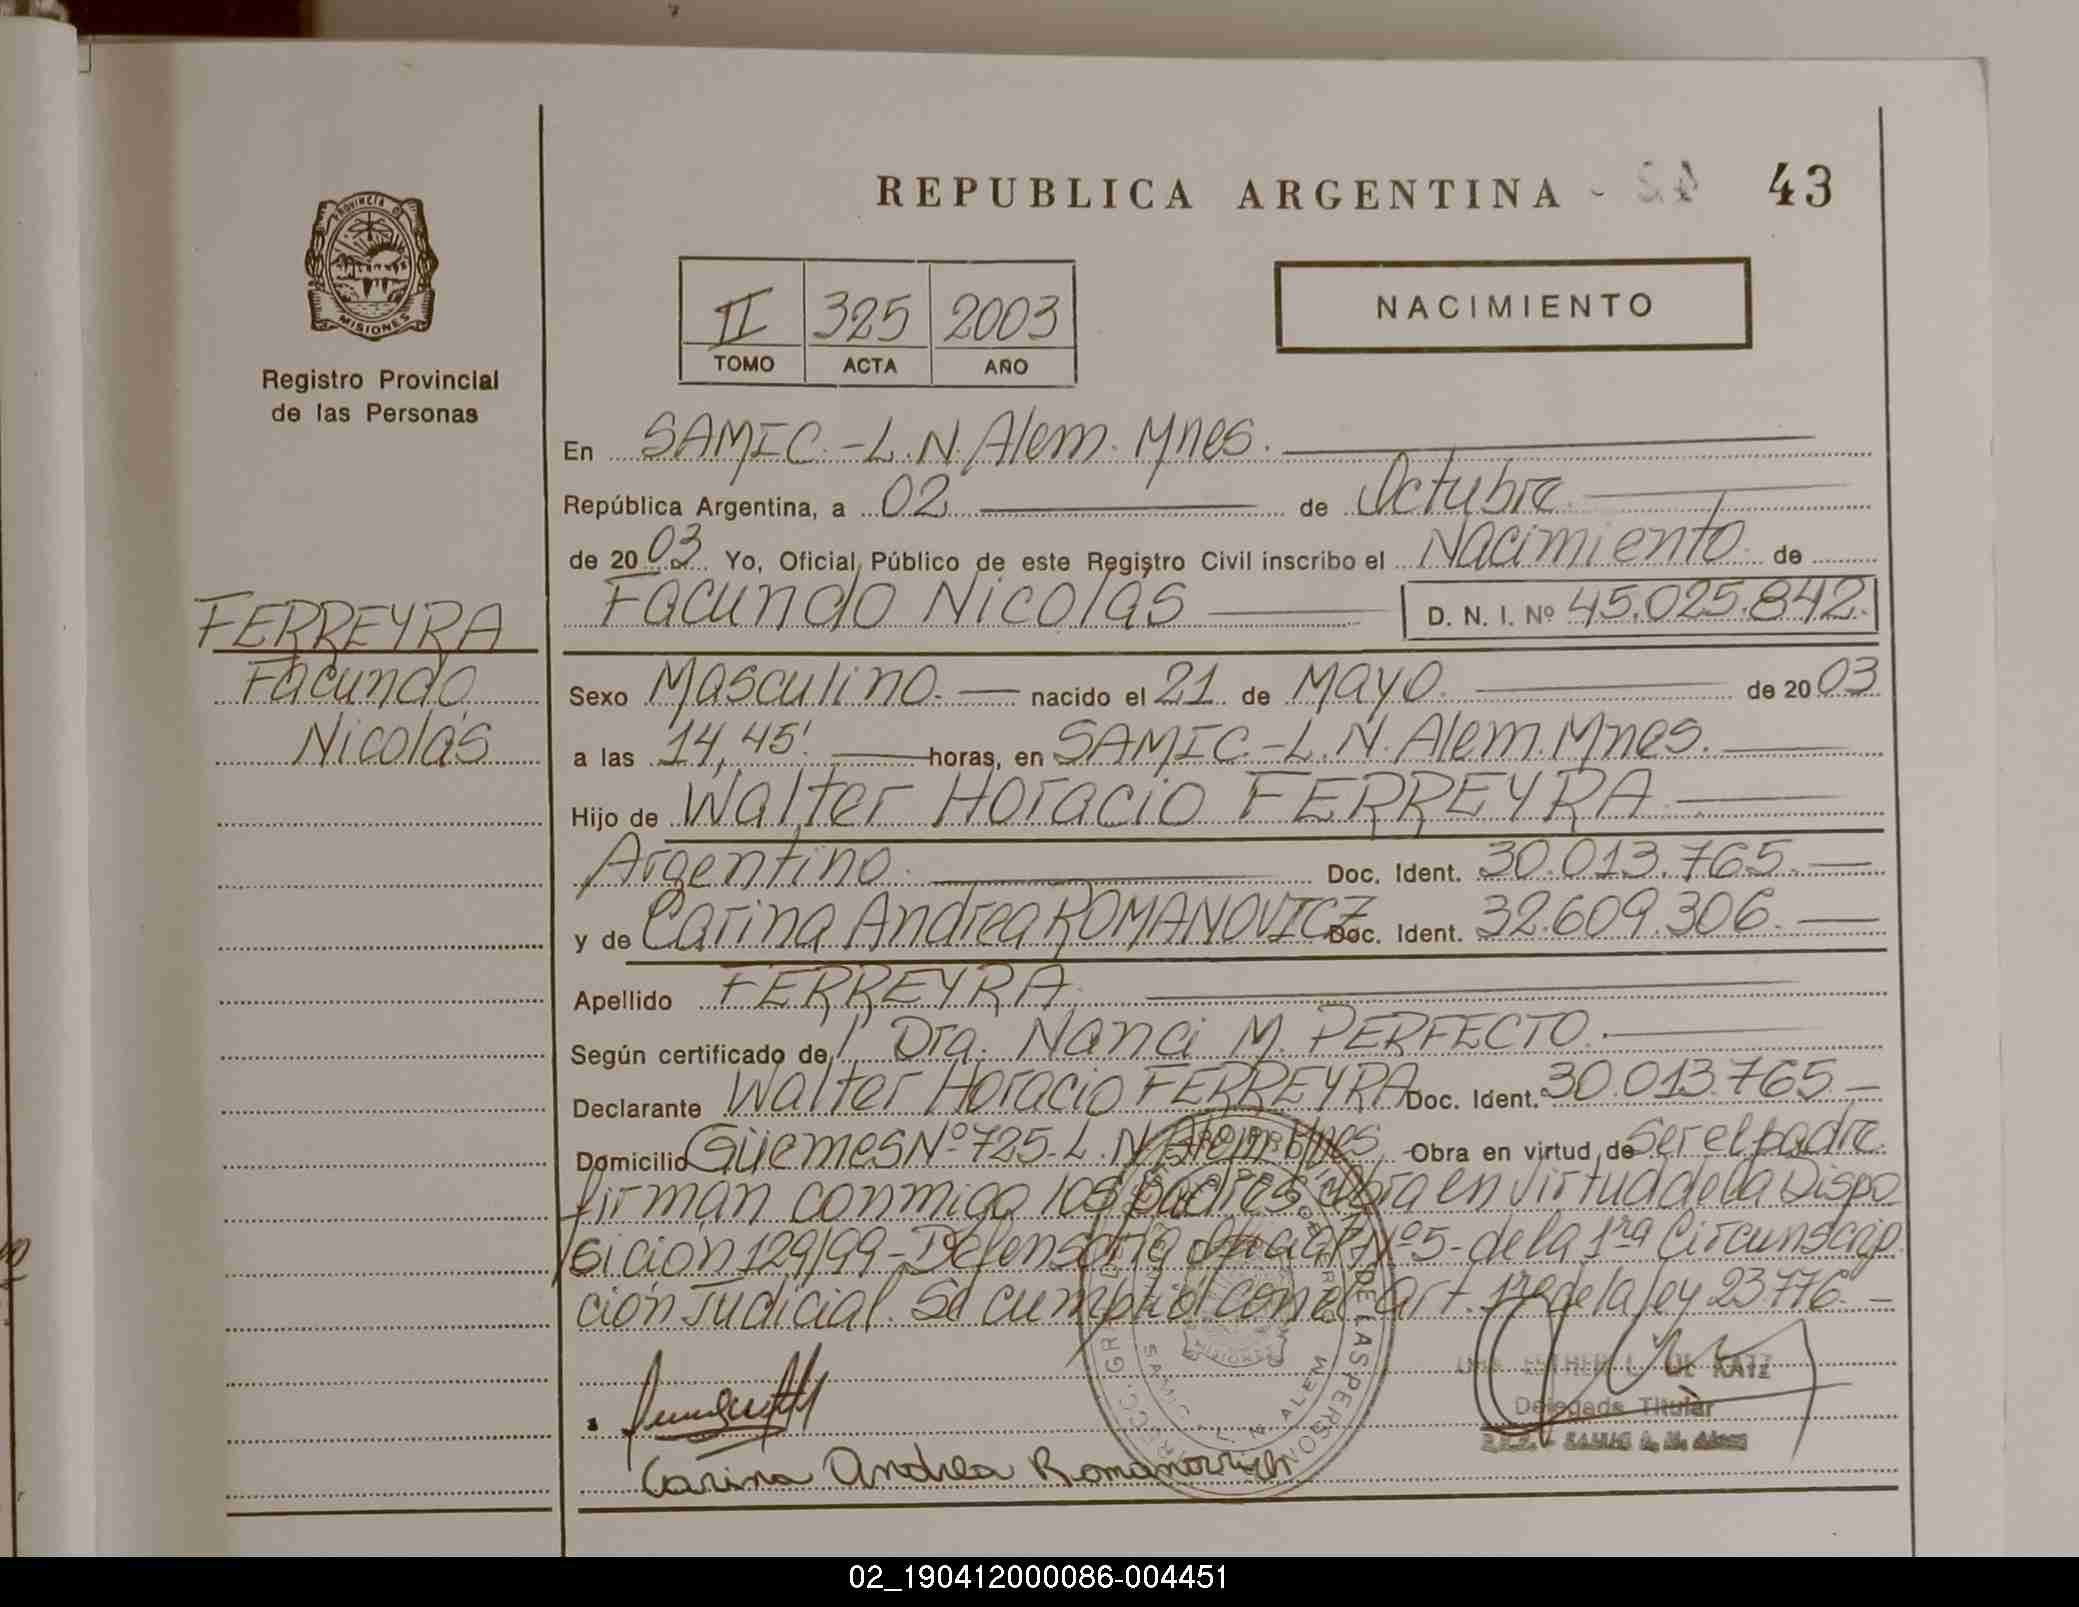 REPUBLICA ARGENTINA - 43
PROVINCIA DE
MISIONES
Registro Provincial
de las Personas
II 325 2003
TOMO ACTA AÑO
NACIMIENTO
En SAMIC.-L.N.Alem. Mnes.
República Argentina, a 02 de Octubre
de 2003 Yo, Oficial Público de este Registro Civil inscribo el Nacimiento de
Facundo Nicolás D. N. I. Nº 45.025.842.
FERREYRA
Facundo
Nicolás
Sexo Masculino. nacido el 21 de Mayo. de 2003
a las 14,45'. horas, en SAMIC.-L.N. Alem. Mnes.
Hijo de Walter Horacio FERREYRA
Argentino. Doc. Ident. 30.013.765.
y de Carina Andrea ROMANOVICZ Doc. Ident. 32.609.306.
Apellido FERREYRA
Según certificado de Dra. Nanci M. PERFECTO.
Declarante Walter Horacio FERREYRA Doc. Ident. 30.013.765
Domicilio Güemes Nº 725-L.N. Alem. Mnes. Obra en virtud de Ser el padre.
firman conmigo los padres. Obra en virtud de la Dispo
sición 129/99-Defensoría Oficial Nº5-de la 1ra Circunscrip
ción Judicial. Se cumplió con el art. 1º de la ley 23776
ESTHER L. DE KATZ
Delegada Titular
DE LAS PERSONAS
SAMIC L N ALEM
MISIONES
Carina Andrea Romanovicz
02_190412000086-004451